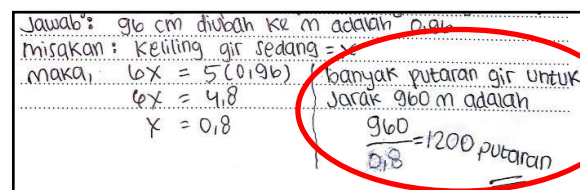 Jawab : 96 cm diubah ke m adalah 0,96
misalkan : Keliling gir sedang = x
maka, 6x = 5 (0,96)
6x = 4,8
x = 0,8
banyak putaran gir untuk
Jarak 960 m adalah
960
0,8
=1200 putaran